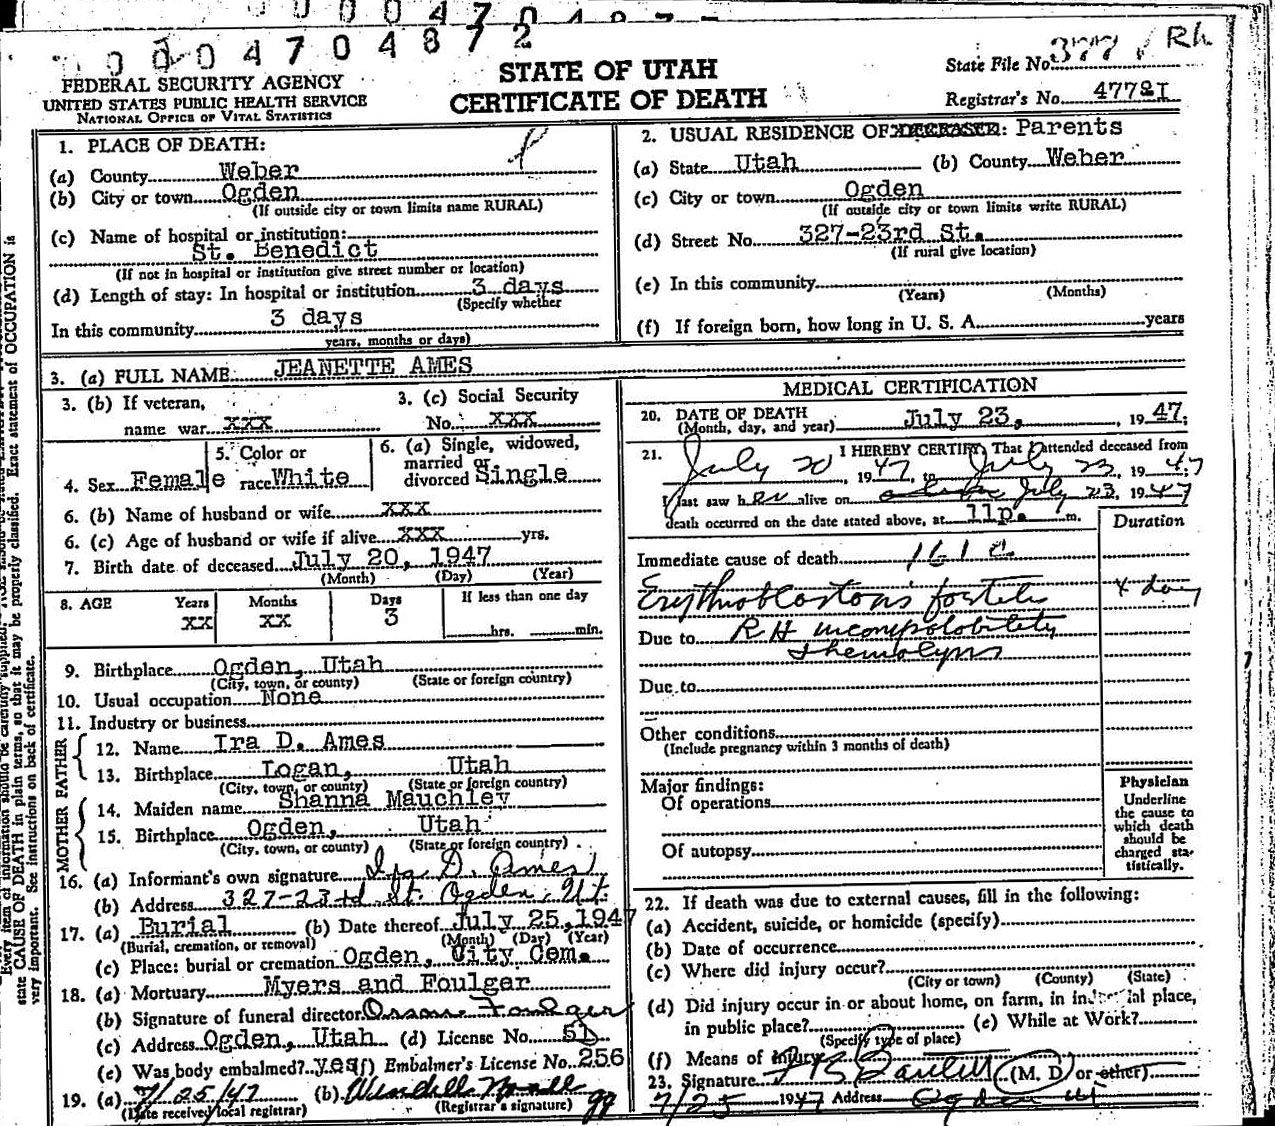 0004704872
FEDERAL SECURITY AGENCY
UNITED STATES PUBLIC HEALTH SERVICE
NATIONAL OFFICE OF VITAL STATISTICS
STATE OF UTAH
CERTIFICATE OF DEATH
State File No. 377 Rh
Registrar's No. 4778I
1. PLACE OF DEATH:
(a) County Weber
(b) City or town Ogden
(If outside city or town limits name RURAL)
(c) Name of hospital or institution:
St. Benedict
(If not in hospital or institution give street number or location)
(d) Length of stay: In hospital or institution 3 days
(Specify whether
In this community 3 days
years, months or days)
2. USUAL RESIDENCE OF DECEASED: Parents
(a) State Utah (b) County Weber
(c) City or town Ogden
(If outside city or town limits write RURAL)
(d) Street No. 327-23rd St.
(If rural give location)
(e) In this community
(Years) (Months)
(f) If foreign born, how long in U. S. A. years
3. (a) FULL NAME: JEANETTE AMES
3. (b) If veteran, name war XXX
3. (c) Social Security No. XXX
4. Sex Female
5. Color or race White
6. (a) Single, widowed, married or divorced Single
6. (b) Name of husband or wife XXX
6. (c) Age of husband or wife if alive XXX yrs.
7. Birth date of deceased July 20, 1947
(Month) (Day) (Year)
8. AGE Years Months Days If less than one day
XX XX 3 hrs. min.
9. Birthplace Ogden, Utah
(City, town, or county) (State or foreign country)
10. Usual occupation None
11. Industry or business
FATHER
12. Name Ira D. Ames
13. Birthplace Logan, Utah
(City, town, or county) (State or foreign country)
MOTHER
14. Maiden name Shanna Mauchley
15. Birthplace Ogden, Utah
(City, town, or county) (State or foreign country)
16. (a) Informant's own signature Ira D. Ames
(b) Address 327-23rd St. Ogden, Ut.
17. (a) Burial (b) Date thereof July 25, 1947
(Burial, cremation, or removal) (Month) (Day) (Year)
(c) Place: burial or cremation Ogden, City Cem.
18. (a) Mortuary Myers and Foulger
(b) Signature of funeral director Orson Foulger
(c) Address Ogden, Utah (d) License No. 5D
(e) Was body embalmed? yes (f) Embalmer's License No. 256
19. (a) 7/25/47 (b) Wendell
(Date received local registrar) (Registrar's signature)
MEDICAL CERTIFICATION
20. DATE OF DEATH
(Month, day, and year) July 23, 1947.
21. I HEREBY CERTIFY, That I attended deceased from
July 20, 1947, to July 23, 1947
I last saw her alive on July 23, 1947
death occurred on the date stated above, at 11p. m.
Duration
Immediate cause of death 161a
Erythroblastosis foetalis 4 day
Due to RH incompatability
Hemolysis
Due to
Other conditions
(Include pregnancy within 3 months of death)
Major findings:
Of operations
Of autopsy
Physician
Underline
the cause to
which death
should be
charged sta-
tistically.
22. If death was due to external causes, fill in the following:
(a) Accident, suicide, or homicide (specify)
(b) Date of occurrence
(c) Where did injury occur?
(City or town) (County) (State)
(d) Did injury occur in or about home, on farm, in industrial place,
in public place? (e) While at Work?
(Specify type of place)
(f) Means of Injury
23. Signature (M. D. or other)
7/25 1947 Address Ogden Ut
Every item of information should be carefully supplied.
state CAUSE OF DEATH in plain terms, so that it may be properly classified. Exact statement of OCCUPATION is
very important. See instructions on back of certificate.